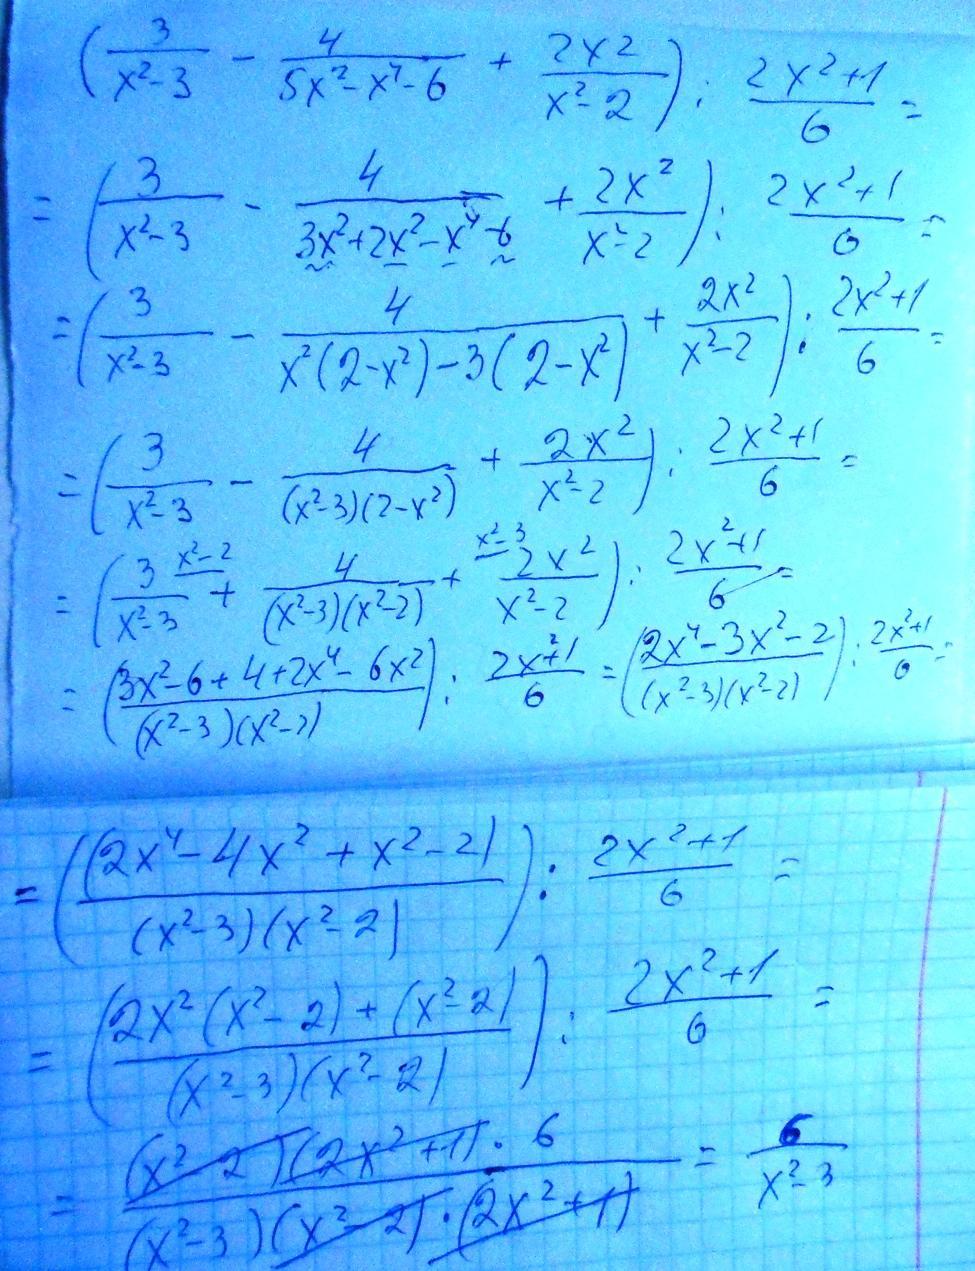 (3/(x²-3) - 4/(5x²-x⁴-6) + 2x2/(x²-2)) : (2x²+1)/6 =
= (3/(x²-3) - 4/(3x²+2x²-x⁴-6) + 2x²/(x²-2)) : (2x²+1)/6 =
= (3/(x²-3) - 4/(x²(2-x²)-3(2-x²)) + 2x²/(x²-2)) : (2x²+1)/6 =
= (3/(x²-3) - 4/((x²-3)(2-x²)) + 2x²/(x²-2)) : (2x²+1)/6 =
= (3 x²-2/(x²-3) + 4/((x²-3)(x²-2)) + x²-3 2x²/(x²-2)) : (2x²+1)/6 =
= ((3x²-6+4+2x⁴-6x²)/((x²-3)(x²-2))) : (2x²+1)/6 = ((2x⁴-3x²-2)/((x²-3)(x²-2))) : (2x²+1)/6 =
= ((2x⁴-4x²+x²-2)/((x²-3)(x²-2))) : (2x²+1)/6 =
= ((2x²(x²-2)+(x²-2))/((x²-3)(x²-2))) : (2x²+1)/6 =
= ((x²-2)(2x²+1)·6)/((x²-3)(x²-2)·(2x²+1)) = 6/(x²-3)